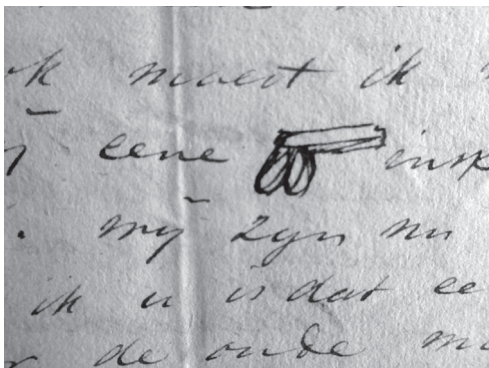 moest ik
eene
my zyn nu
ik u is dat ee
de oude m